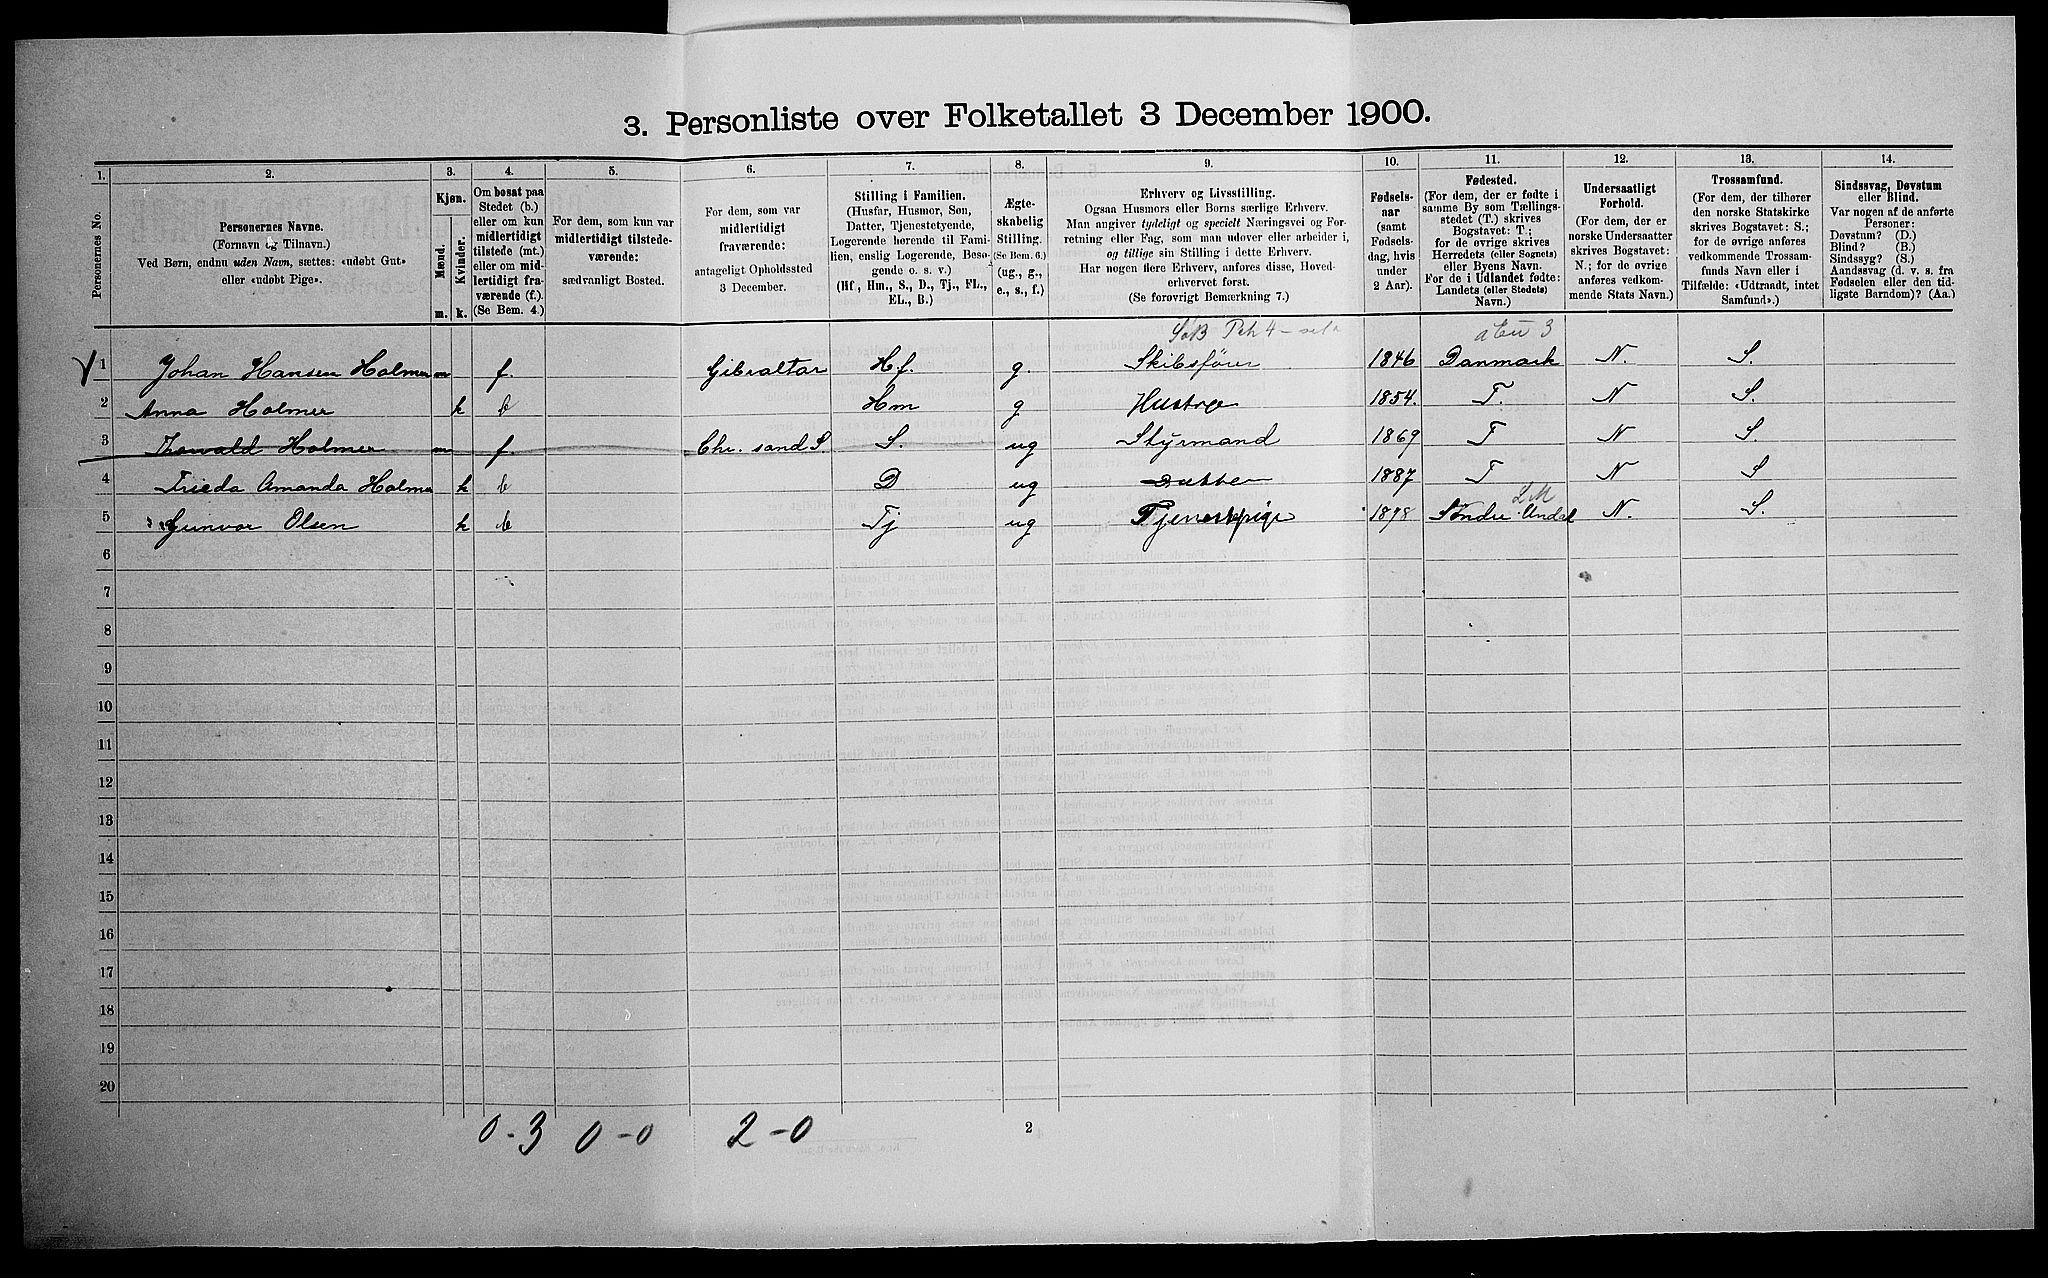 3. Personliste over Folketallet 3 December 1900.
1. 2. 3. 4. 5. 6. 7. 8. 9. 10. 11. 12. 13. 14.
Personernes No.
Personernes Navne.
(Fornavn og Tilnavn.)
Ved Børn, endnu uden Navn, sættes: «udøbt Gut»
eller «udøbt Pige».
Kjøn.
Mænd. Kvinder.
m. k.
Om bosat paa
Stedet (b.)
eller om kun
midlertidigt
tilstede (mt.)
eller om mid-
lertidigt fra-
værende (f.).
(Se Bem. 4.)
For dem, som kun var
midlertidigt tilstede-
værende:
sædvanligt Bosted.
For dem, som var
midlertidigt
fraværende:
antageligt Opholdssted
3 December.
Stilling i Familien.
(Husfar, Husmor, Søn,
Datter, Tjenestetyende,
Logerende hørende til Fami-
lien, enslig Logerende, Besø-
gende o. s. v.)
(Hf., Hm., S., D., Tj., FL.,
EL., B.)
Ægte-
skabelig
Stilling.
(Se Bem. 6.)
(ug., g.,
e., s., f.)
Erhverv og Livsstilling.
Ogsaa Husmors eller Børns særlige Erhverv.
Man angiver tydeligt og specielt Næringsvei og For-
retning eller Fag, som man udøver eller arbeider i,
og tillige sin Stilling i dette Erhverv.
Har nogen flere Erhverv, anføres disse, Hoved-
erhvervet først.
(Se forøvrigt Bemærkning 7.)
Fødsels-
aar
(samt
Fødsels-
dag, hvis
under
2 Aar).
Fødested.
(For dem, der er fødte i
samme By som Tællings-
stedet (T.) skrives
Bogstavet: T.;
for de øvrige skrives
Herredets (eller Sognets)
eller Byens Navn.
For de i Udlandet fødte:
Landets (eller Stedets)
Navn.)
Undersaatligt
Forhold.
(For dem, der er
norske Undersaatter
skrives Bogstavet:
N.; for de øvrige
anføres vedkom-
mende Stats Navn.)
Trossamfund.
(For dem, der tilhører
den norske Statskirke
skrives Bogstavet: S.;
for de øvrige anføres
vedkommende Trossam-
funds Navn eller i
Tilfælde: «Udtraadt, intet
Samfund».)
Sindssvag, Døvstum
eller Blind.
Var nogen af de anførte
Personer:
Døvstum? (D.)
Blind? (B.)
Sindssyg? (S.)
Aandssvag (d. v. s. fra
Fødselen eller den tid-
ligste Barndom)? (Aa.)
1 Johan Hansen Holmer m f. Gibraltar Hf. g. Skibsfører 1846 Danmark N. S.
2 Anna Holmer k b Hm g Hustro 1854. T. N S.
3 Thorvald Holmer m f. Chr. sand S. S. ug Styrmand 1869 T N S.
4 Frieda Amanda Holmer k b D ug Datter 1887 T N S
5 Gunvor Olsen k b Tj ug Tjenestepige 1898 Søndre Undal N. S.
6
7
8
9
10
11
12
13
14
15
16
17
18
19
20
0-3 0-0 2-0
2